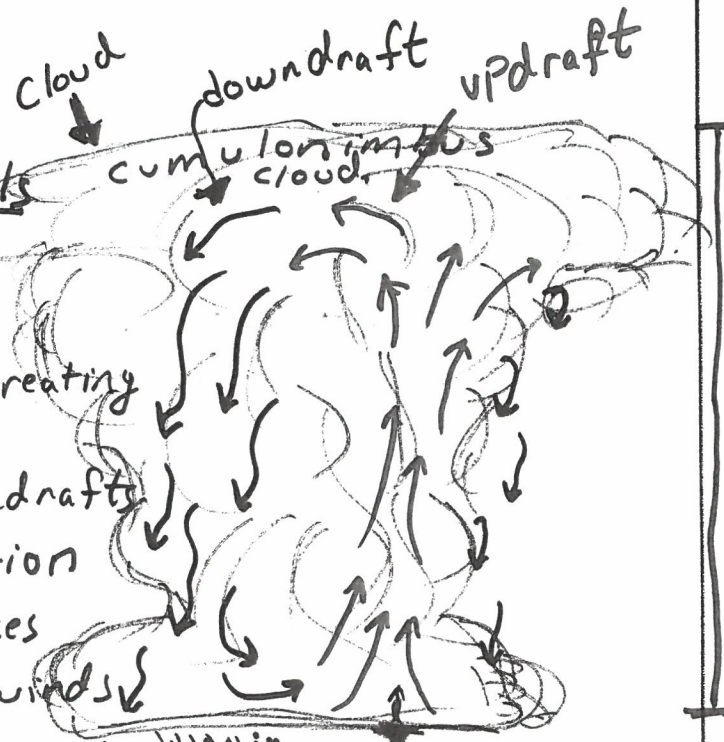 cloud
downdraft
updraft
cumulonimbus
cloud.
ts
reating
drafts
ion
es
winds